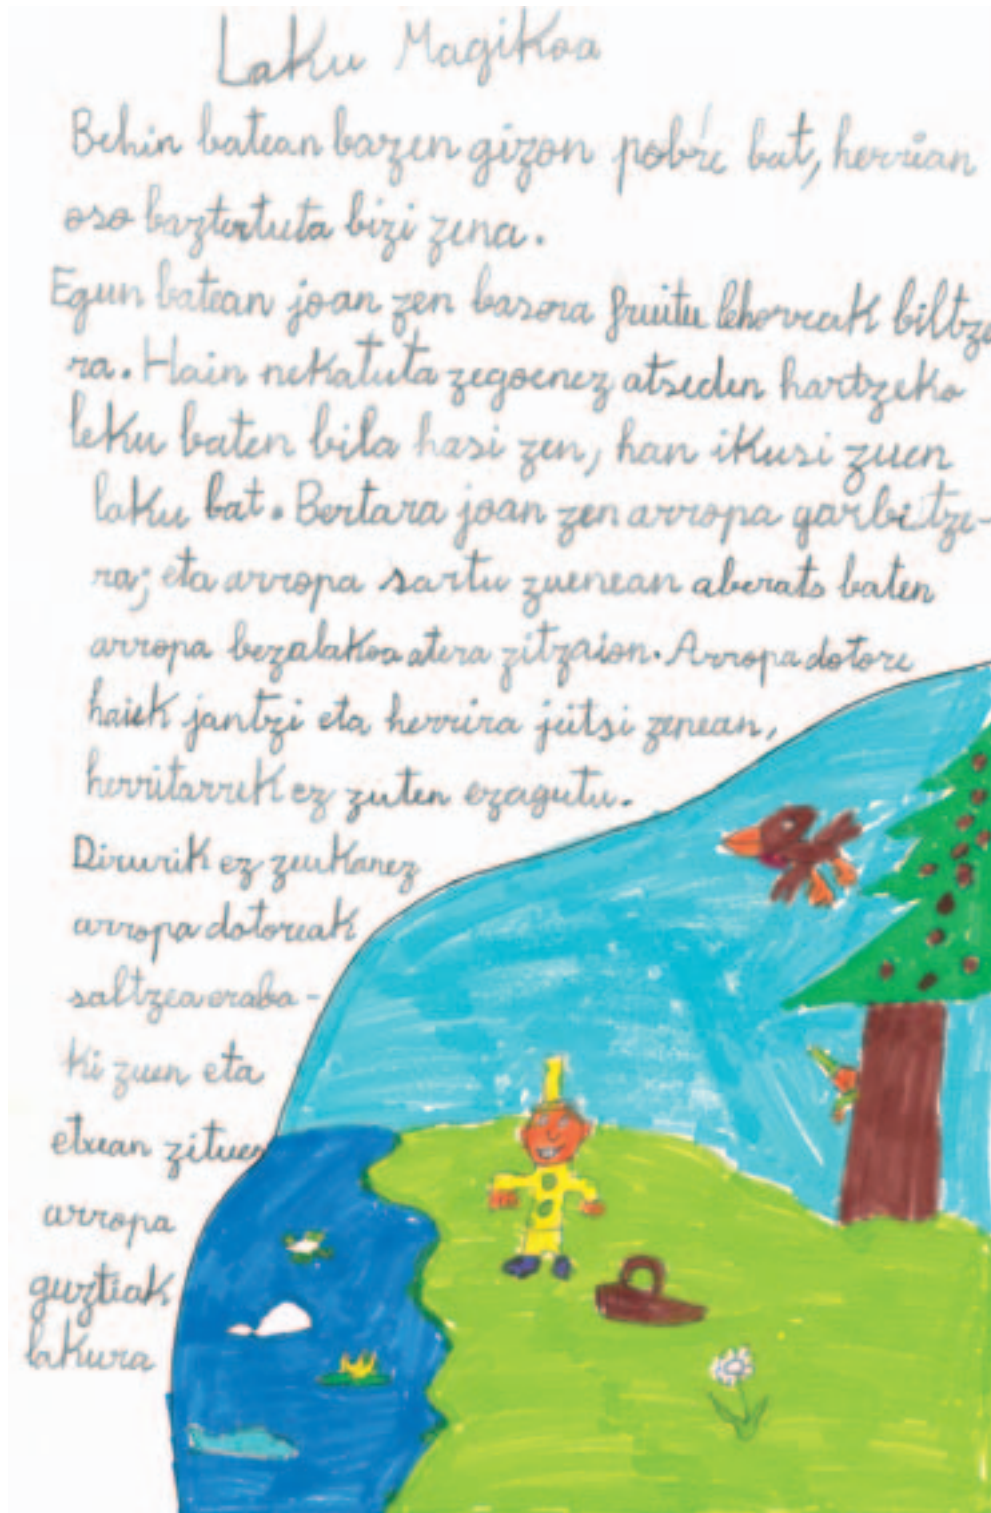 Laku Magikoa
Behin batean bazen gizon pobre bat, herrian
oso baztertuta bizi zena.
Egun batean joan zen basora fruitu lehorreak biltze
ra. Hain nekatuta zegoenez atseden hartzeko
leku baten bila hasi zen, han ikusi zuen
laku bat. Bertara joan zen arropa garbitze-
ra; eta arropa sartu zuenean aberats baten
arropa bezalakoa atera zitzaion. Arropa dotore
haiek jantzi eta herrira jeitsi zenean,
herritarrek ez zuten ezagutu.
Dirurik ez zeukanez
arropa dotoreak
saltzea eraba-
ki zuen eta
etxean zituen
arropa
guztiak
lakura